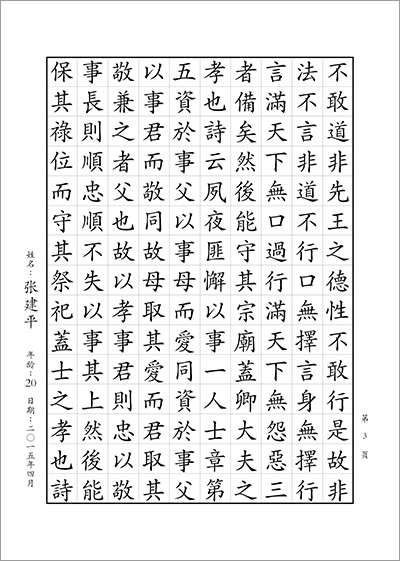 第3頁
不敢道非先王之德性不敢行是故非
法不言非道不行口無擇言身無擇行
言滿天下無口過行滿天下無怨惡三
者備矣然後能守其宗廟蓋卿大夫之
孝也詩云夙夜匪懈以事一人士章第
五資於事父以事母而愛同資於事父
以事君而敬同故母取其愛而君取其
敬兼之者父也故以孝事君則忠以敬
事長則順忠順不失以事其上然後能
保其祿位而守其祭祀蓋士之孝也詩
姓名：张建平 年龄：20 日期：二〇一五年四月